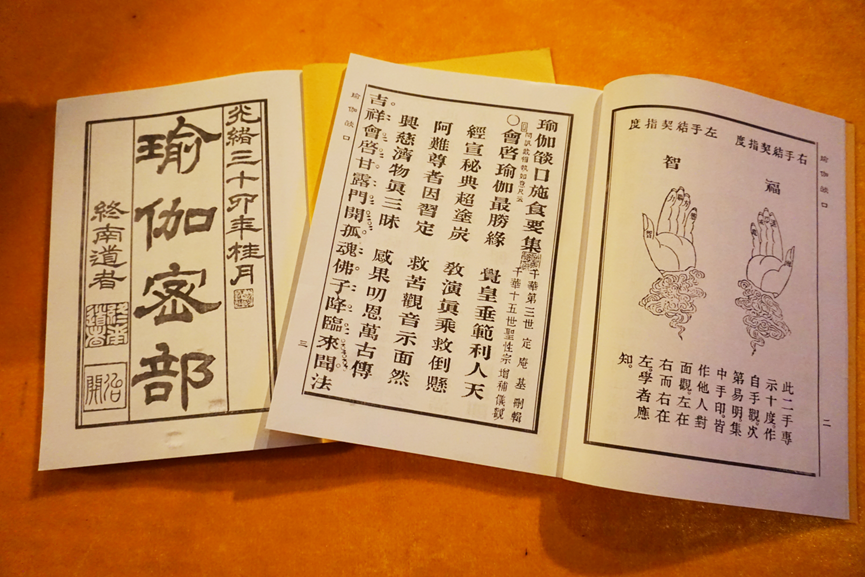 光緒三十卯年桂月
瑜伽密部
終南道者
冶開
瑜伽燄口
二
右手結契指度
左手結契指度
福
智
此二手專
示十度。作
自手觀。次
第易明集
中手印。皆
作他人對
面觀。左在
右而右在
左。學者應
知。
瑜伽燄口施食要集
千華第三世 定庵基 刪輯
千華十五世聖性宗 增補儀觀
○會啓瑜伽最勝緣 覺皇垂範利人天
經宣秘典超塗炭 教演眞乘救倒懸
阿難尊者因習定 救苦觀音示面然
興慈濟物眞三昧 感果叨恩萬古傳
吉祥會啓甘露門開。孤魂佛子降臨來聞法
瑜伽燄口
三